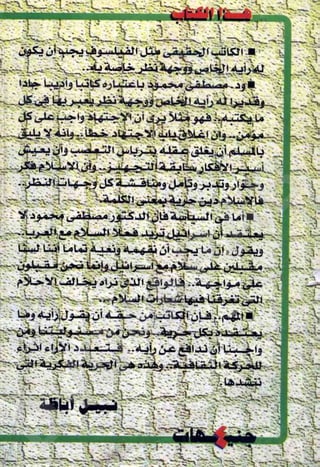 هذا الكتاب
■ الكاتب الحقيقى مثل الفيلسوف يجب أن يكون
له رأيه الخاص ووجهة نظر خاصة به.
■ ود. مصطفى محمود باعتباره كاتبا وأديبا جادا
وقديرا له رأيه الخاص ووجهة نظر يعبر بها فى كل
ما يكتبه.. فهو مثلا يرى أن الاجتهاد واجب على كل
مؤمن.. وان اغلاق باب الاجتهاد خطأ.. وانه لا يليق
بالمسلم أن يغلق عقله بترباس التعصب وان يعيش
أسير الأفكار سابقة التجهيز.. وان الاسلام فكر
وحوار وتدبر وتأمل ومناقشة كل وجهات النظر..
فالاسلام دين حرية بمعنى الكلمة.
■ اما فى السياسة فان الدكتور مصطفى محمود لا
يعتقد أن اسرائيل تريد فعلا السلام مع العرب..
ويقول : ان ما يجب أن نفهمه ونعيه تماما أننا لسنا
مقبلين على سلام مع اسرائيل وانما نحن مقبلون
على مواجهة.. فالواقع الذى نراه يخالف الأحلام
التى تغرقنا فيها شعارات السلام..
■ المهم.. فان الكاتب من حقه أن يقول رأيه وما
يعتقده بكل حرية.. ونحن من مسئوليتنا ومن
واجبنا أن ندافع عن رأيه.. فتعدد الآراء اثراء
للحركة الثقافية.. وهذه هى الحرية الفكرية التى
ننشدها.
نبيل أباظة
جنيهات